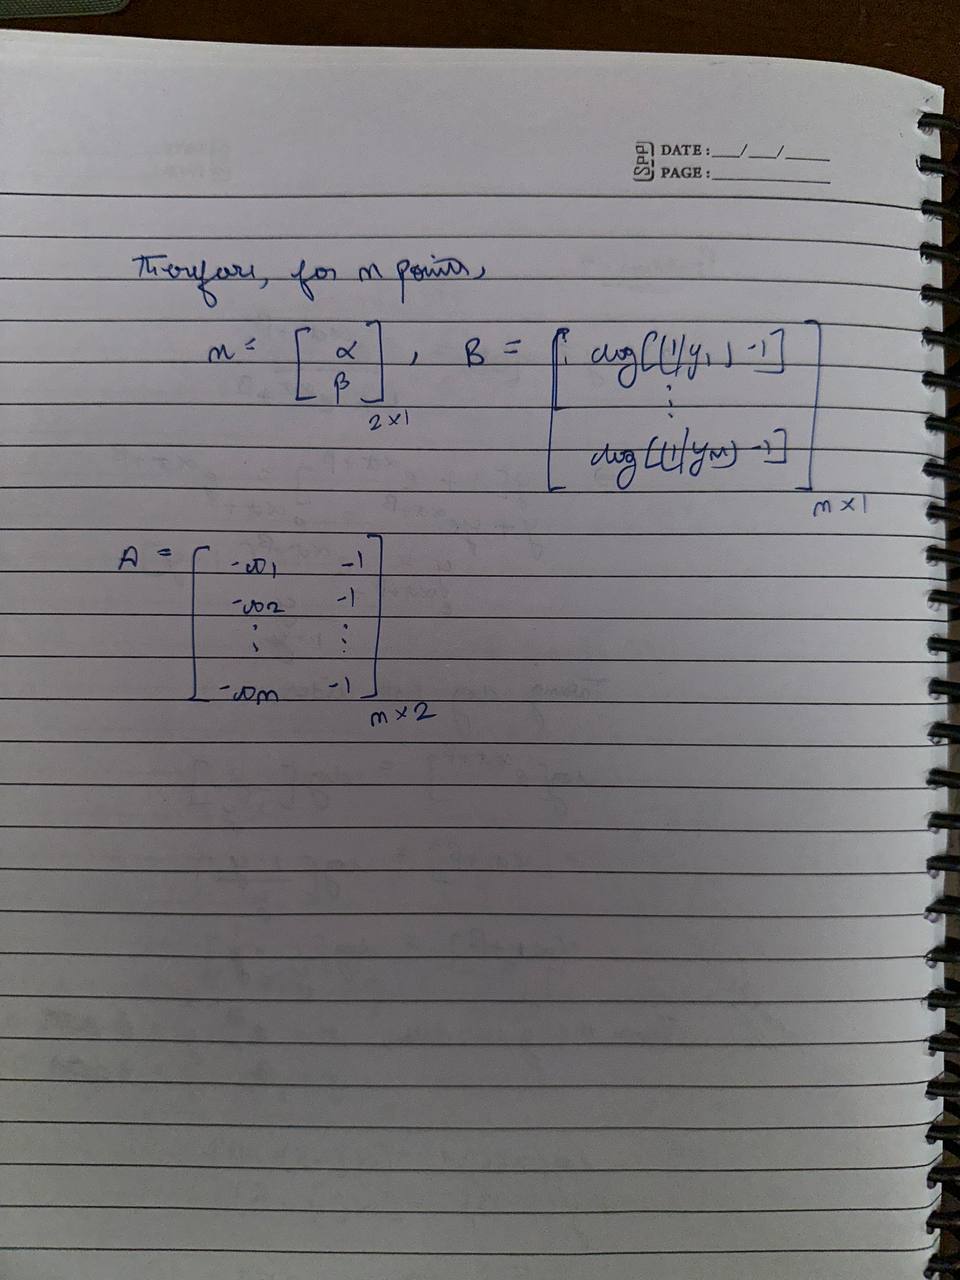 SPP DATE: __/__/___
PAGE: ________
Therefore, for n points,
x = [ α β ] 2×1 , B = [ log[(1/y1) -1] ⋮ log[(1/yn) -1] ] n×1
A = [ -x1 -1
-x2 -1
⋮ ⋮
-xn -1 ] n×2